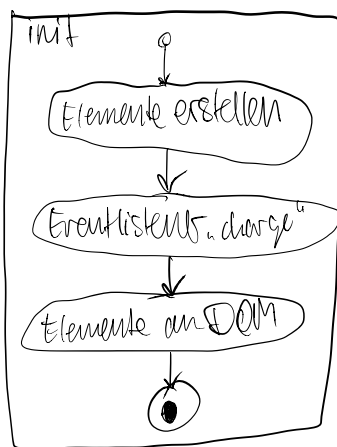 init
Elemente erstellen
Eventlistener „change"
Elemente an DOM